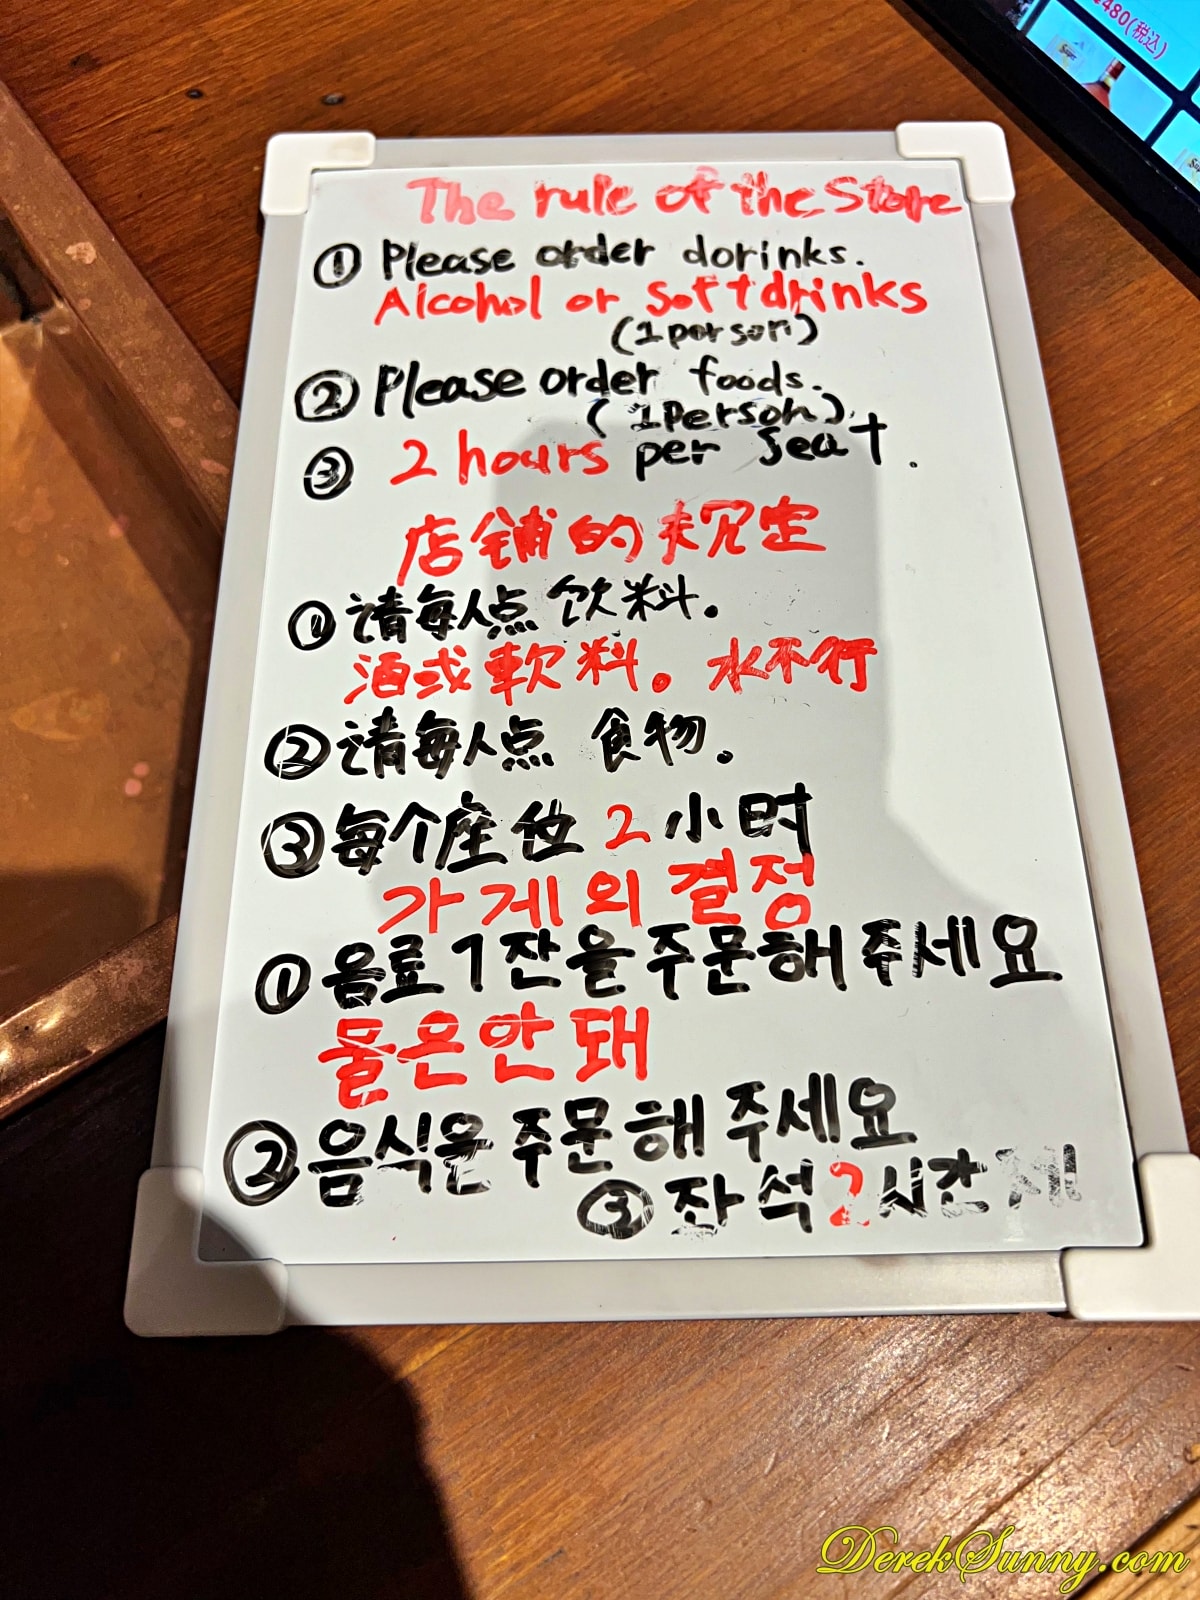 480(税込)
The rule of the Store
① Please order dorinks.
Alcohol or softdrinks
(1person)
② Please order foods.
(1Person)
③ 2 hours per seat.
店舗的規定
①请每人点 饮料。
酒或軟料。水不行
②请每人点 食物。
③每个座位2小时
가게의 결정
①음료1잔을주문해주세요
물은안돼
②음식은주문해주세요
③좌석2시간제
DerekSunny.com